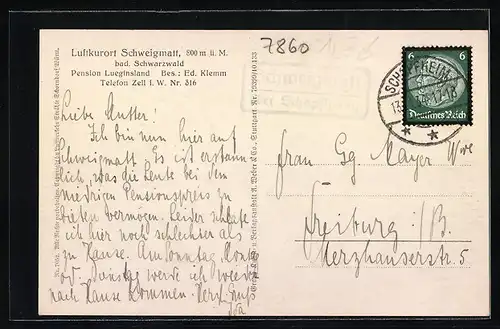 7860
Luftkurort Schweigmatt, 800 m ü. M.
bad. Schwarzwald
Pension Lueginsland Bes.: Ed. Klemm
Telefon Zell i. W. Nr. 316
Liebe Mutter!
Ich bin nun hier auf
Schweigmatt. Es ist erstaun-
lich, was die Leute bei dem
niedrigen Pensionspreis zu
bieten vermögen. Leider schlafe
ich hier noch schlechter als
zu Hause. Am Sonntag, Montag
od. Dienstag werde ich wieder
nach Hause kommen. Herzl. Gruß
6 6
Deutsches Reich
SCHOPFHEIM
Frau Gg Mayer Wwe
Freiburg i/B.
Merzhauserstr. 5